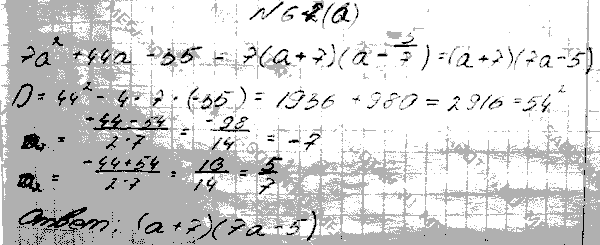 № 62(а)
7a² + 44a - 35 = 7(a+7)(a - 5/7) = (a+7)(7a-5)
D = 44² - 4 · 7 · (-35) = 1936 + 980 = 2916 = 54²
a₁ = (-44-54)/(2·7) = -98/14 = -7
a₂ = (-44+54)/(2·7) = 10/14 = 5/7
Ответ: (a+7)(7a-5)